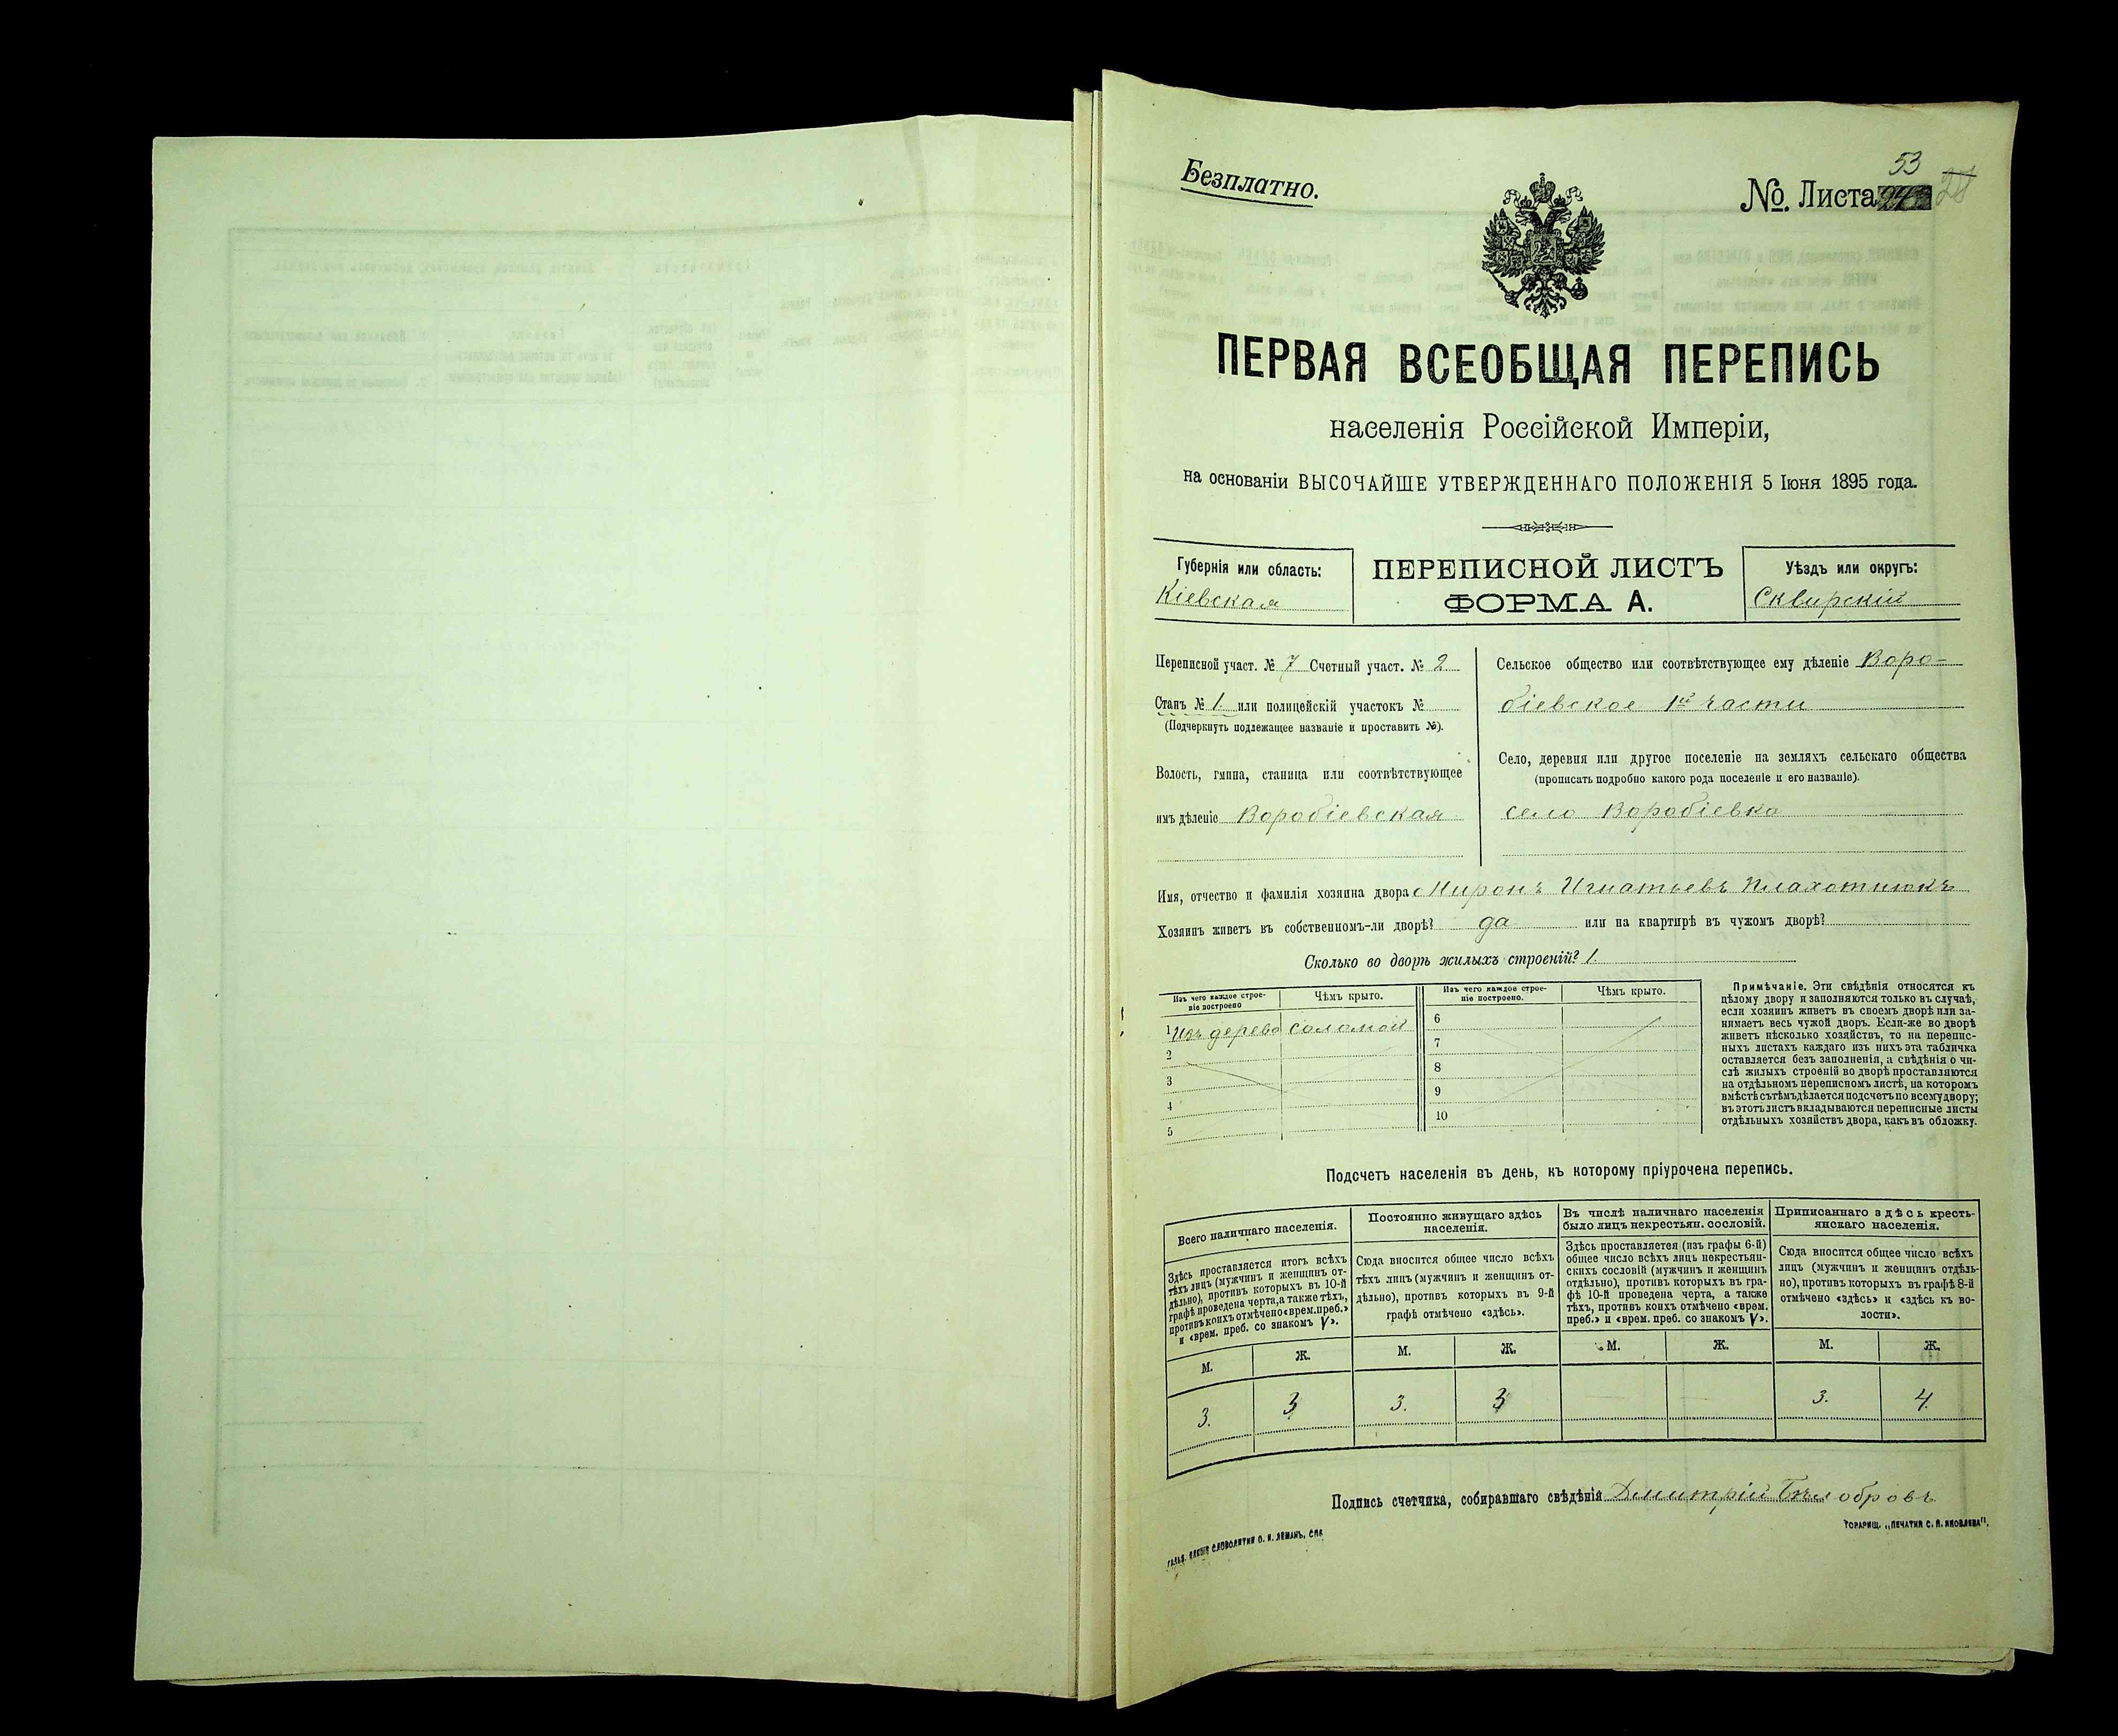 Безплатно.
53
№. Листа
ПЕРВАЯ ВСЕОБЩАЯ ПЕРЕПИСЬ
населенія Россійской Имперіи,
на основаніи ВЫСОЧАЙШЕ УТВЕРЖДЕННАГО ПОЛОЖЕНІЯ 5 Іюня 1895 года.
Губернія или область:
Кіевская
ПЕРЕПИСНОЙ ЛИСТЪ
ФОРМА А.
Уѣздъ или округъ:
Сквирскій
Переписной участ. № 7 Счетный участ. № 2
Станъ № 1. или полицейскій участокъ №
(Подчеркнуть подлежащее названіе и проставить №).
Волость, гмина, станица или соотвѣтствующее
имъ дѣленіе Воробіевская
Сельское общество или соотвѣтствующее ему дѣленіе Воро-
біевское 1й части
Село, деревня или другое поселеніе на земляхъ сельскаго общества
(прописать подробно какого рода поселеніе и его названіе).
село Воробіевка
Имя, отчество и фамилія хозяина двора Миронъ Игнатьевъ Плахотнюкъ
Хозяинъ живетъ въ собственномъ-ли дворѣ? да или на квартирѣ въ чужомъ дворѣ?
Сколько во дворѣ жилыхъ строеній? 1.
Изъ чего каждое строе-
ніе построено
Чѣмъ крыто.
Изъ чего каждое строе-
ніе построено.
Чѣмъ крыто.
1 Изъ дерева соломой
2
3
4
5
6
7
8
9
10
Примѣчаніе. Эти свѣдѣнія относятся къ
цѣлому двору и заполняются только въ случаѣ,
если хозяинъ живетъ въ своемъ дворѣ или за-
нимаетъ весь чужой дворъ. Если-же во дворѣ
живетъ нѣсколько хозяйствъ, то на перепис-
ныхъ листахъ каждаго изъ нихъ эта табличка
оставляется безъ заполненія, а свѣдѣнія о чи-
слѣ жилыхъ строеній во дворѣ проставляются
на отдѣльномъ переписномъ листѣ, на которомъ
вмѣстѣ съ тѣмъ дѣлается подсчетъ по всему двору;
въ этотъ листъ вкладываются переписные листы
отдѣльныхъ хозяйствъ двора, какъ въ обложку.
Подсчетъ населенія въ день, къ которому пріурочена перепись.
Всего наличнаго населенія.
Здѣсь проставляется итогъ всѣхъ
тѣхъ лицъ (мужчинъ и женщинъ от-
дѣльно), противъ которыхъ въ 10-й
графѣ проведена черта, а также тѣхъ,
противъ коихъ отмѣчено «врем. преб.»
и «врем. преб. со знакомъ V».
Постоянно живущаго здѣсь
населенія.
Сюда вносится общее число всѣхъ
тѣхъ лицъ (мужчинъ и женщинъ от-
дѣльно), противъ которыхъ въ 9-й
графѣ отмѣчено «здѣсь».
Въ числѣ наличнаго населенія
было лицъ некрестьян. сословій.
Здѣсь проставляется (изъ графы 6-й)
общее число всѣхъ лицъ некрестьян-
скихъ сословій (мужчинъ и женщинъ
отдѣльно), противъ которыхъ въ гра-
фѣ 10-й проведена черта, а также
тѣхъ, противъ коихъ отмѣчено «врем.
преб.» и «врем. преб. со знакомъ V».
Приписаннаго здѣсь кресть-
янскаго населенія.
Сюда вносится общее число всѣхъ
лицъ (мужчинъ и женщинъ отдѣль-
но), противъ которыхъ въ графѣ 8-й
отмѣчено «здѣсь» и «здѣсь къ во-
лости».
М. Ж. М. Ж. М. Ж. М. Ж.
3. 3 3. 3 — — 3. 4.
Подпись счетчика, собиравшаго свѣдѣнія Дмитрій Бѣлобровъ
СЛОВОЛИТНИ О. И. ЛЕМАНЪ, СПБ
ТОВАРИЩ. „ПЕЧАТНЯ С. П. ЯКОВЛЕВА".